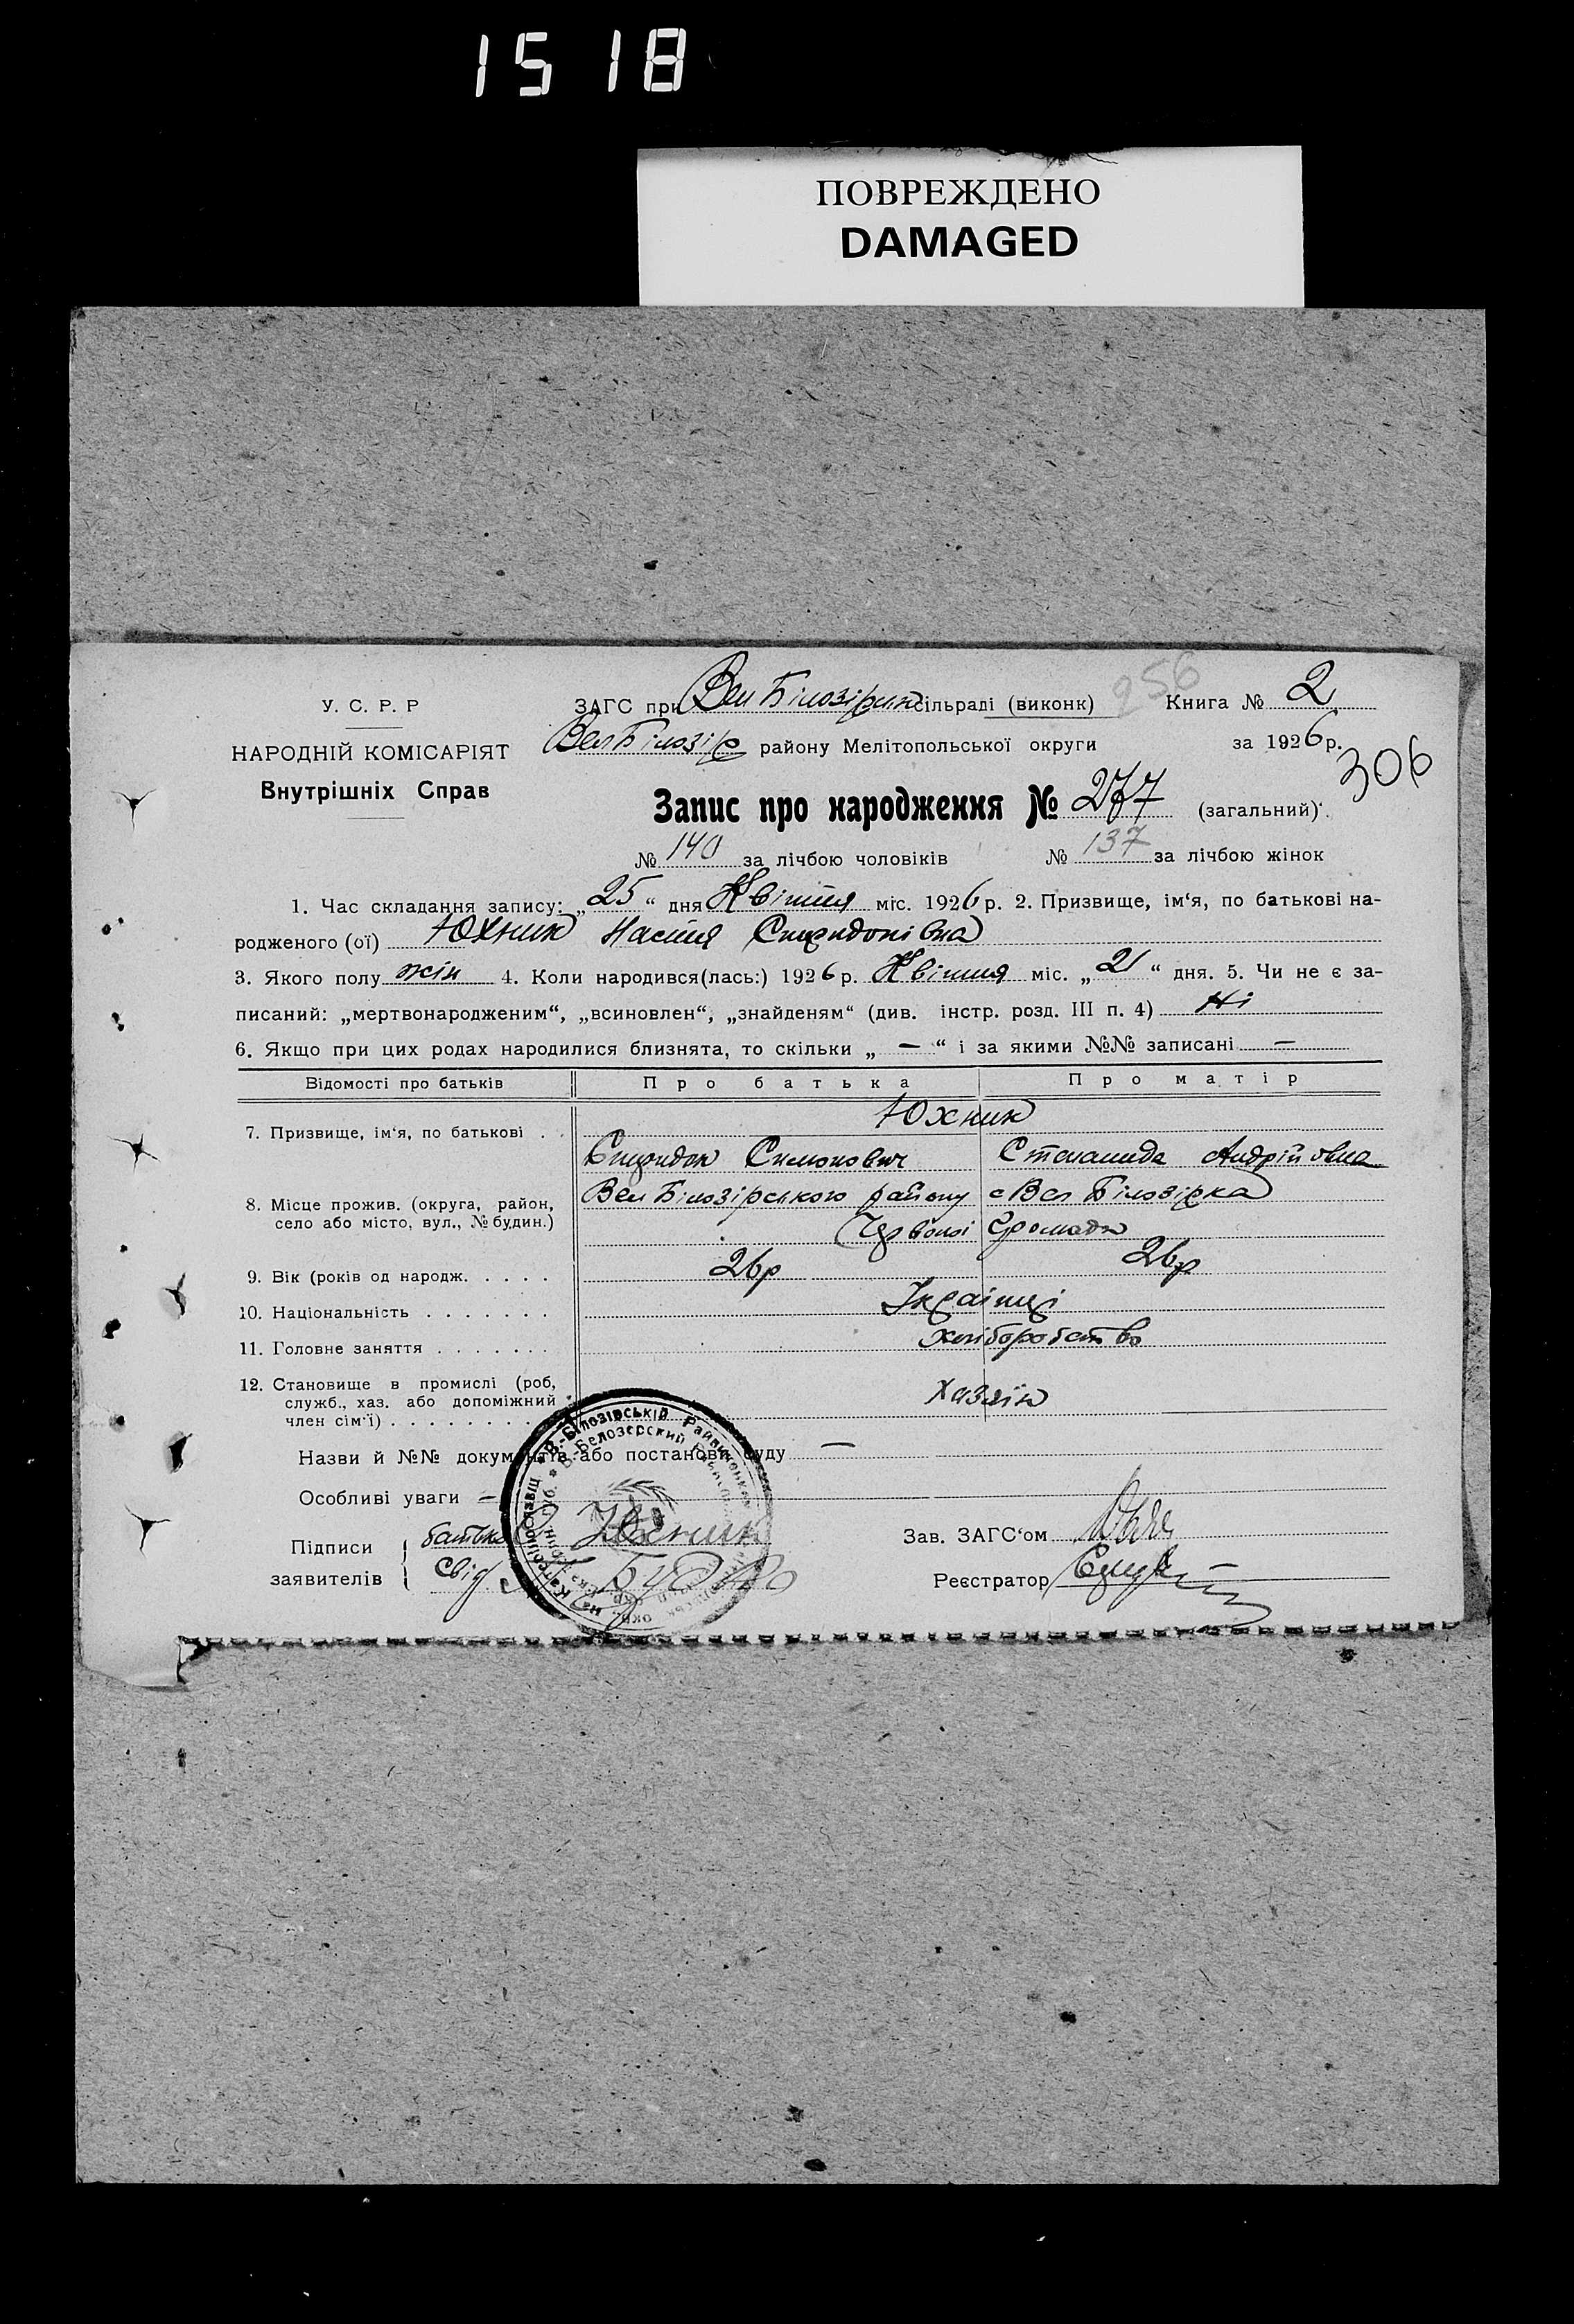 1518
ПОВРЕЖДЕНО
DAMAGED
256
У. С. Р. Р
ЗАГС при Вел Білозірск сільраді (виконк)
Книга № 2
НАРОДНІЙ КОМІСАРІЯТ
Вел Білозір району Мелітопольської округи
за 1926 р.
306
Внутрішніх Справ
Запис про народження № 277 (загальний).
№ 140 за лічбою чоловіків № 137 за лічбою жінок
1. Час складання запису: „25“ дня Квітня міс. 1926 р. 2. Призвище, ім‘я, по батькові на-
родженого (ої) Юхник Настя Спиридонівна
3. Якого полу жін 4. Коли народився(лась:) 1926 р. Квітня міс. „21“ дня. 5. Чи не є за-
писаний: „мертвонародженим“, „всиновлен“, „знайденям“ (див. інстр. розд. III п. 4) Ні
6. Якщо при цих родах народилися близнята, то скільки „ — “ і за якими №№ записані —
Відомості про батьків Про батька Про матір
Юхник
7. Призвище, ім‘я, по батькові . .
Спиридон Симонович Степанида Андрійовна
8. Місце прожив. (округа, район, село або місто, вул., № будин.)
Вел Білозірського району с Вел Білозірка
Червоної Громади
9. Вік (років од народж. . . . . 26р 26р
10. Національність . . . . . . . Українці
11. Головне заняття . . . . . . . хліборобство
12. Становище в промислі (роб,
служб., хаз. або допоміжний
член сім‘ї) . . . . . . . . . хазяїн
Назви й №№ документів або постанови суду —
Особливі уваги —
Підписи батько Юхник
заявителів свід
Зав. ЗАГС‘ом
Реєстратор
В.-Білозірській Райвиконком
В.-Белозерский
на Катеринославщ